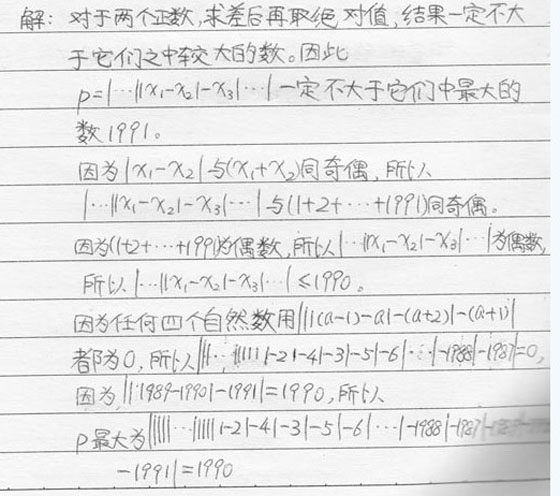 解：对于两个正数,求差后再取绝对值,结果一定不大
于它们之中较大的数。因此
P=|…||x₁-x₂|-x₃|…| 一定不大于它们中最大的
数1991。
因为|x₁-x₂|与(x₁+x₂)同奇偶,所以
|…||x₁-x₂|-x₃|…|与(1+2+…+1991)同奇偶。
因为(1+2+…+1991)为偶数,所以|…||x₁-x₂|-x₃|…|为偶数,
所以|…||x₁-x₂|-x₃|…|≤1990。
因为任何四个自然数用|||(a-1)-a|-(a+2)|-(a+1)|
都为0,所以||…|||||1-2|-4|-3|-5|-6|…|-1988|-1987|=0,
因为||1989-1990|-1991|=1990,所以
P最大为|||||…|||||1-2|-4|-3|-5|-6|…|-1988|-1987|
-1991|=1990